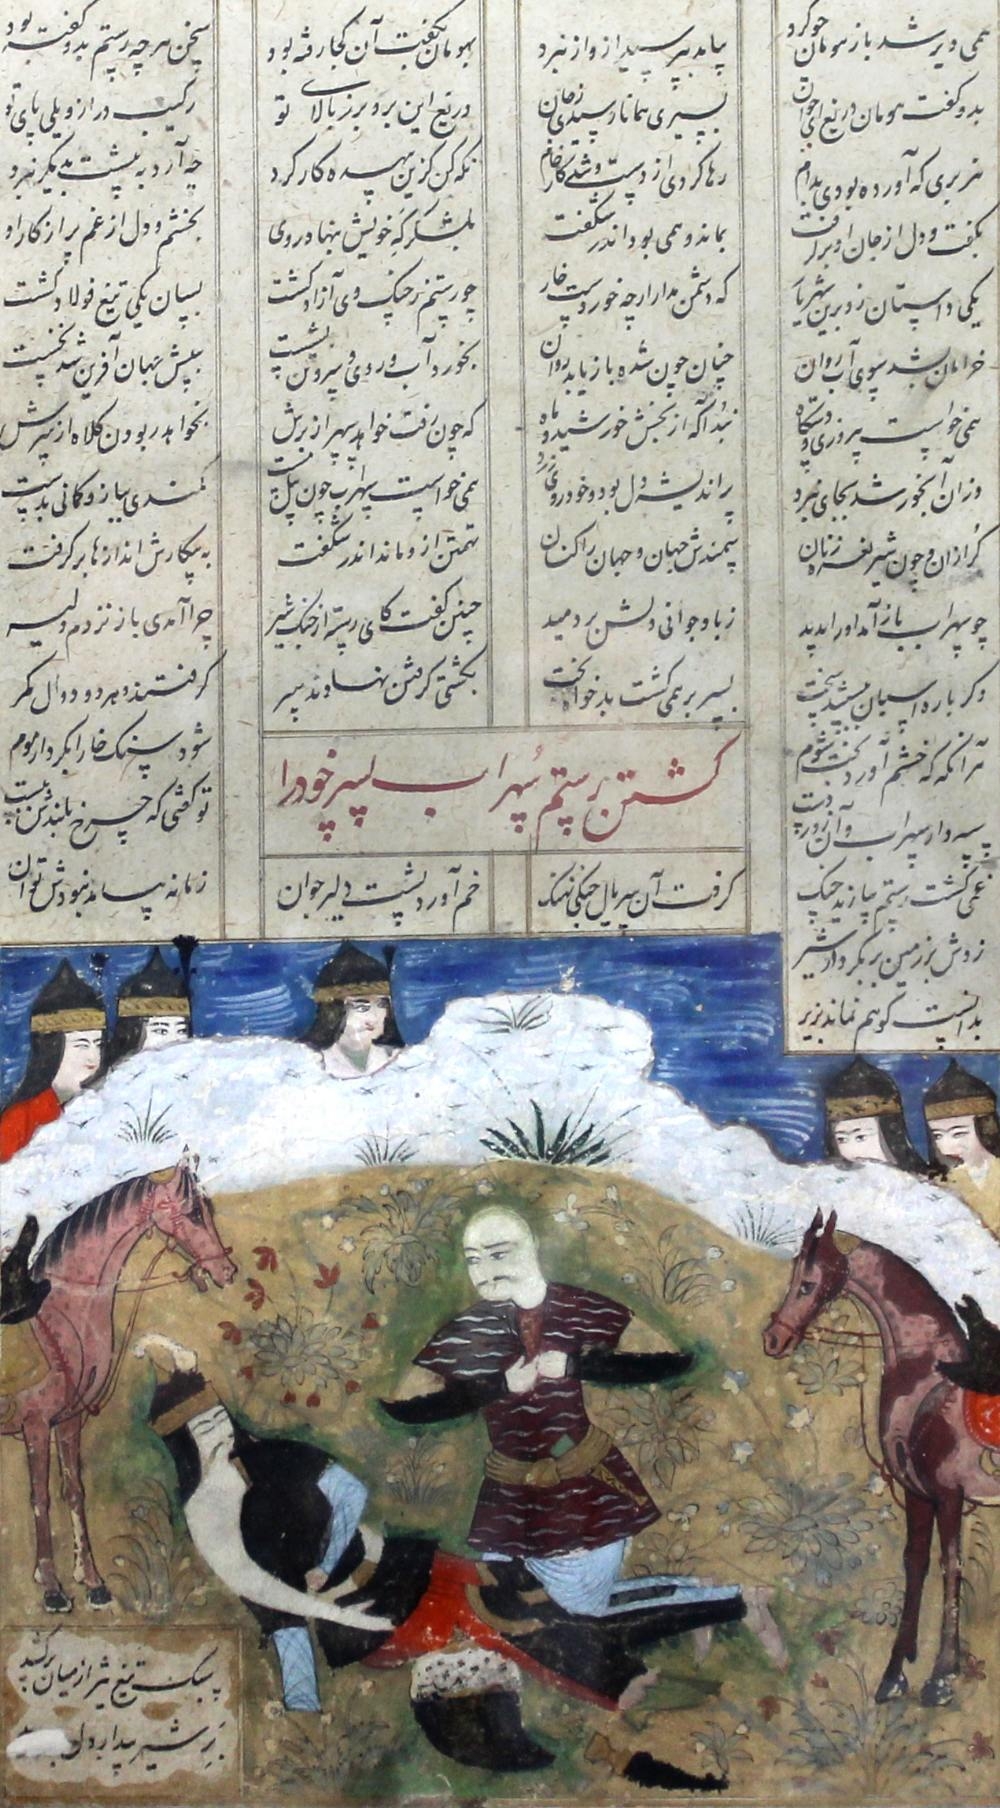 همی دیر شد باز هومان چو گرد بیامد بپرسید از او از نبرد
بهومان بگفت آن کجا رفته بود سخن هر چه رستم بدو گفته بود
بدو گفت هومان دریغ ای جوان بسیری همانا رسیدی زجان
دریغ این بر و برز بالای تو رکیب دراز و یلی پای تو
هزبری که آورده بودی بدام رها کردی از دست و شد کار خام
نگه کن کزین بیهده کار کرد چه آرد به پیشت بدیگر نبرد
بگفت و دل از جان او برگرفت بماند و همی بود اندر شگفت
بلشکرگه خویش بنهاد روی بخشم و دل از غم پر از کار اوی
یکی داستان زد برین شهریار که دشمن مدار ارچه خوردست خوار
چو رستم ز چنگ وی آزاد گشت بسان یکی تیغ فولاد گشت
خرامان بشد سوی آب روان چنان چون شده باز یابد روان
بخورد آب و روی و سر و تن بشست بپیش جهان آفرین شد نخست
همی خواست پیروزی و دستگاه نبد آگه از بخشش خورشید و ماه
که چون رفت خواهد سپهر از برش بخواهد ربودن کلاه از سرش
وزان آبخور شد بجای نبرد پر اندیشه دل بود و خود روی زرد
همی خواست سهراب چون پیل مست کمندی ببازو کمانی بدست
گرازان و چون شیر نعره زنان سمندش جهان و جهان را کنان
تهمتن از و ماند اندر شگفت به پیکارش اندازها برگرفت
چو سهراب باز آمد او را بدید ز باد جوانی دلش بردمید
چنین گفت کای رسته از چنگ شیر چرا آمدی باز نزدم دلیر
دگر باره اسپان ببستند سخت بسر بر همی گشت بدخواه بخت
بکشتی گرفتن نهادند سر گرفتند هر دو دوال کمر
هر آنگه که خشم آورد بخت شوم شود سنگ خارا بکردار موم
کشتن رستم سهراب پسر خود را
سپهدار سهراب و آن زور دست تو گفتی که چرخ بلندش ببست
غمی گشت رستم بیازید چنگ گرفت آن سر یال جنگی نهنگ
خم آورد پشت دلیر جوان زمانه بیامد نبودش توان
زدش بر زمین بر بکردار شیر
بدانست کو هم نماند بزیر
سبک تیغ تیز از میان برکشید
بر شیر بیدار دل